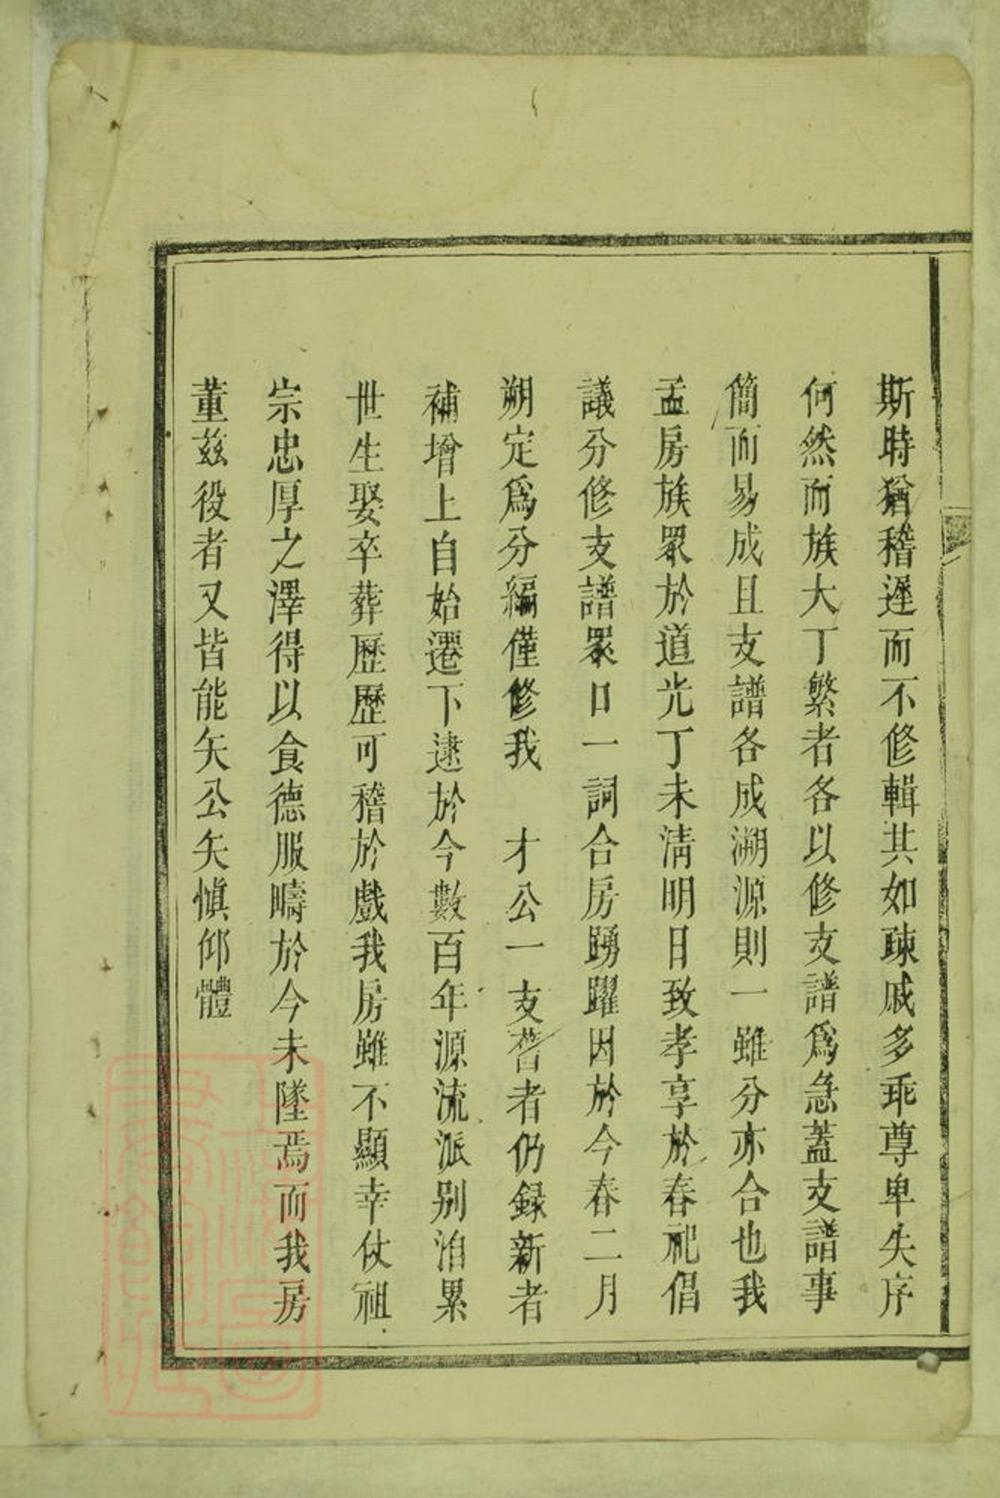 斯時猶稽遲而不修輯其如疎戚多乖尊卑失序
何然而族大丁繁者各以修支譜爲急蓋支譜事
簡而易成且支譜各成溯源則一雖分亦合也我
孟房族眾於道光丁未清明日致孝享於春祀倡
議分修支譜眾口一詞合房踴躍因於今春二月
朔定爲分編僅修我　才公一支舊者仍録新者
補增上自始遷下逮於今數百年源流派别洎累
世生娶卒葬歷歷可稽於戲我房雖不顯幸仗祖
宗忠厚之澤得以食德服疇於今未墜焉而我房
董兹役者又皆能矢公矢愼仰體